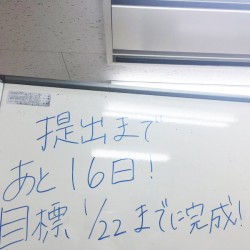 提出まで
あと16日!
目標 1/22までに完成!